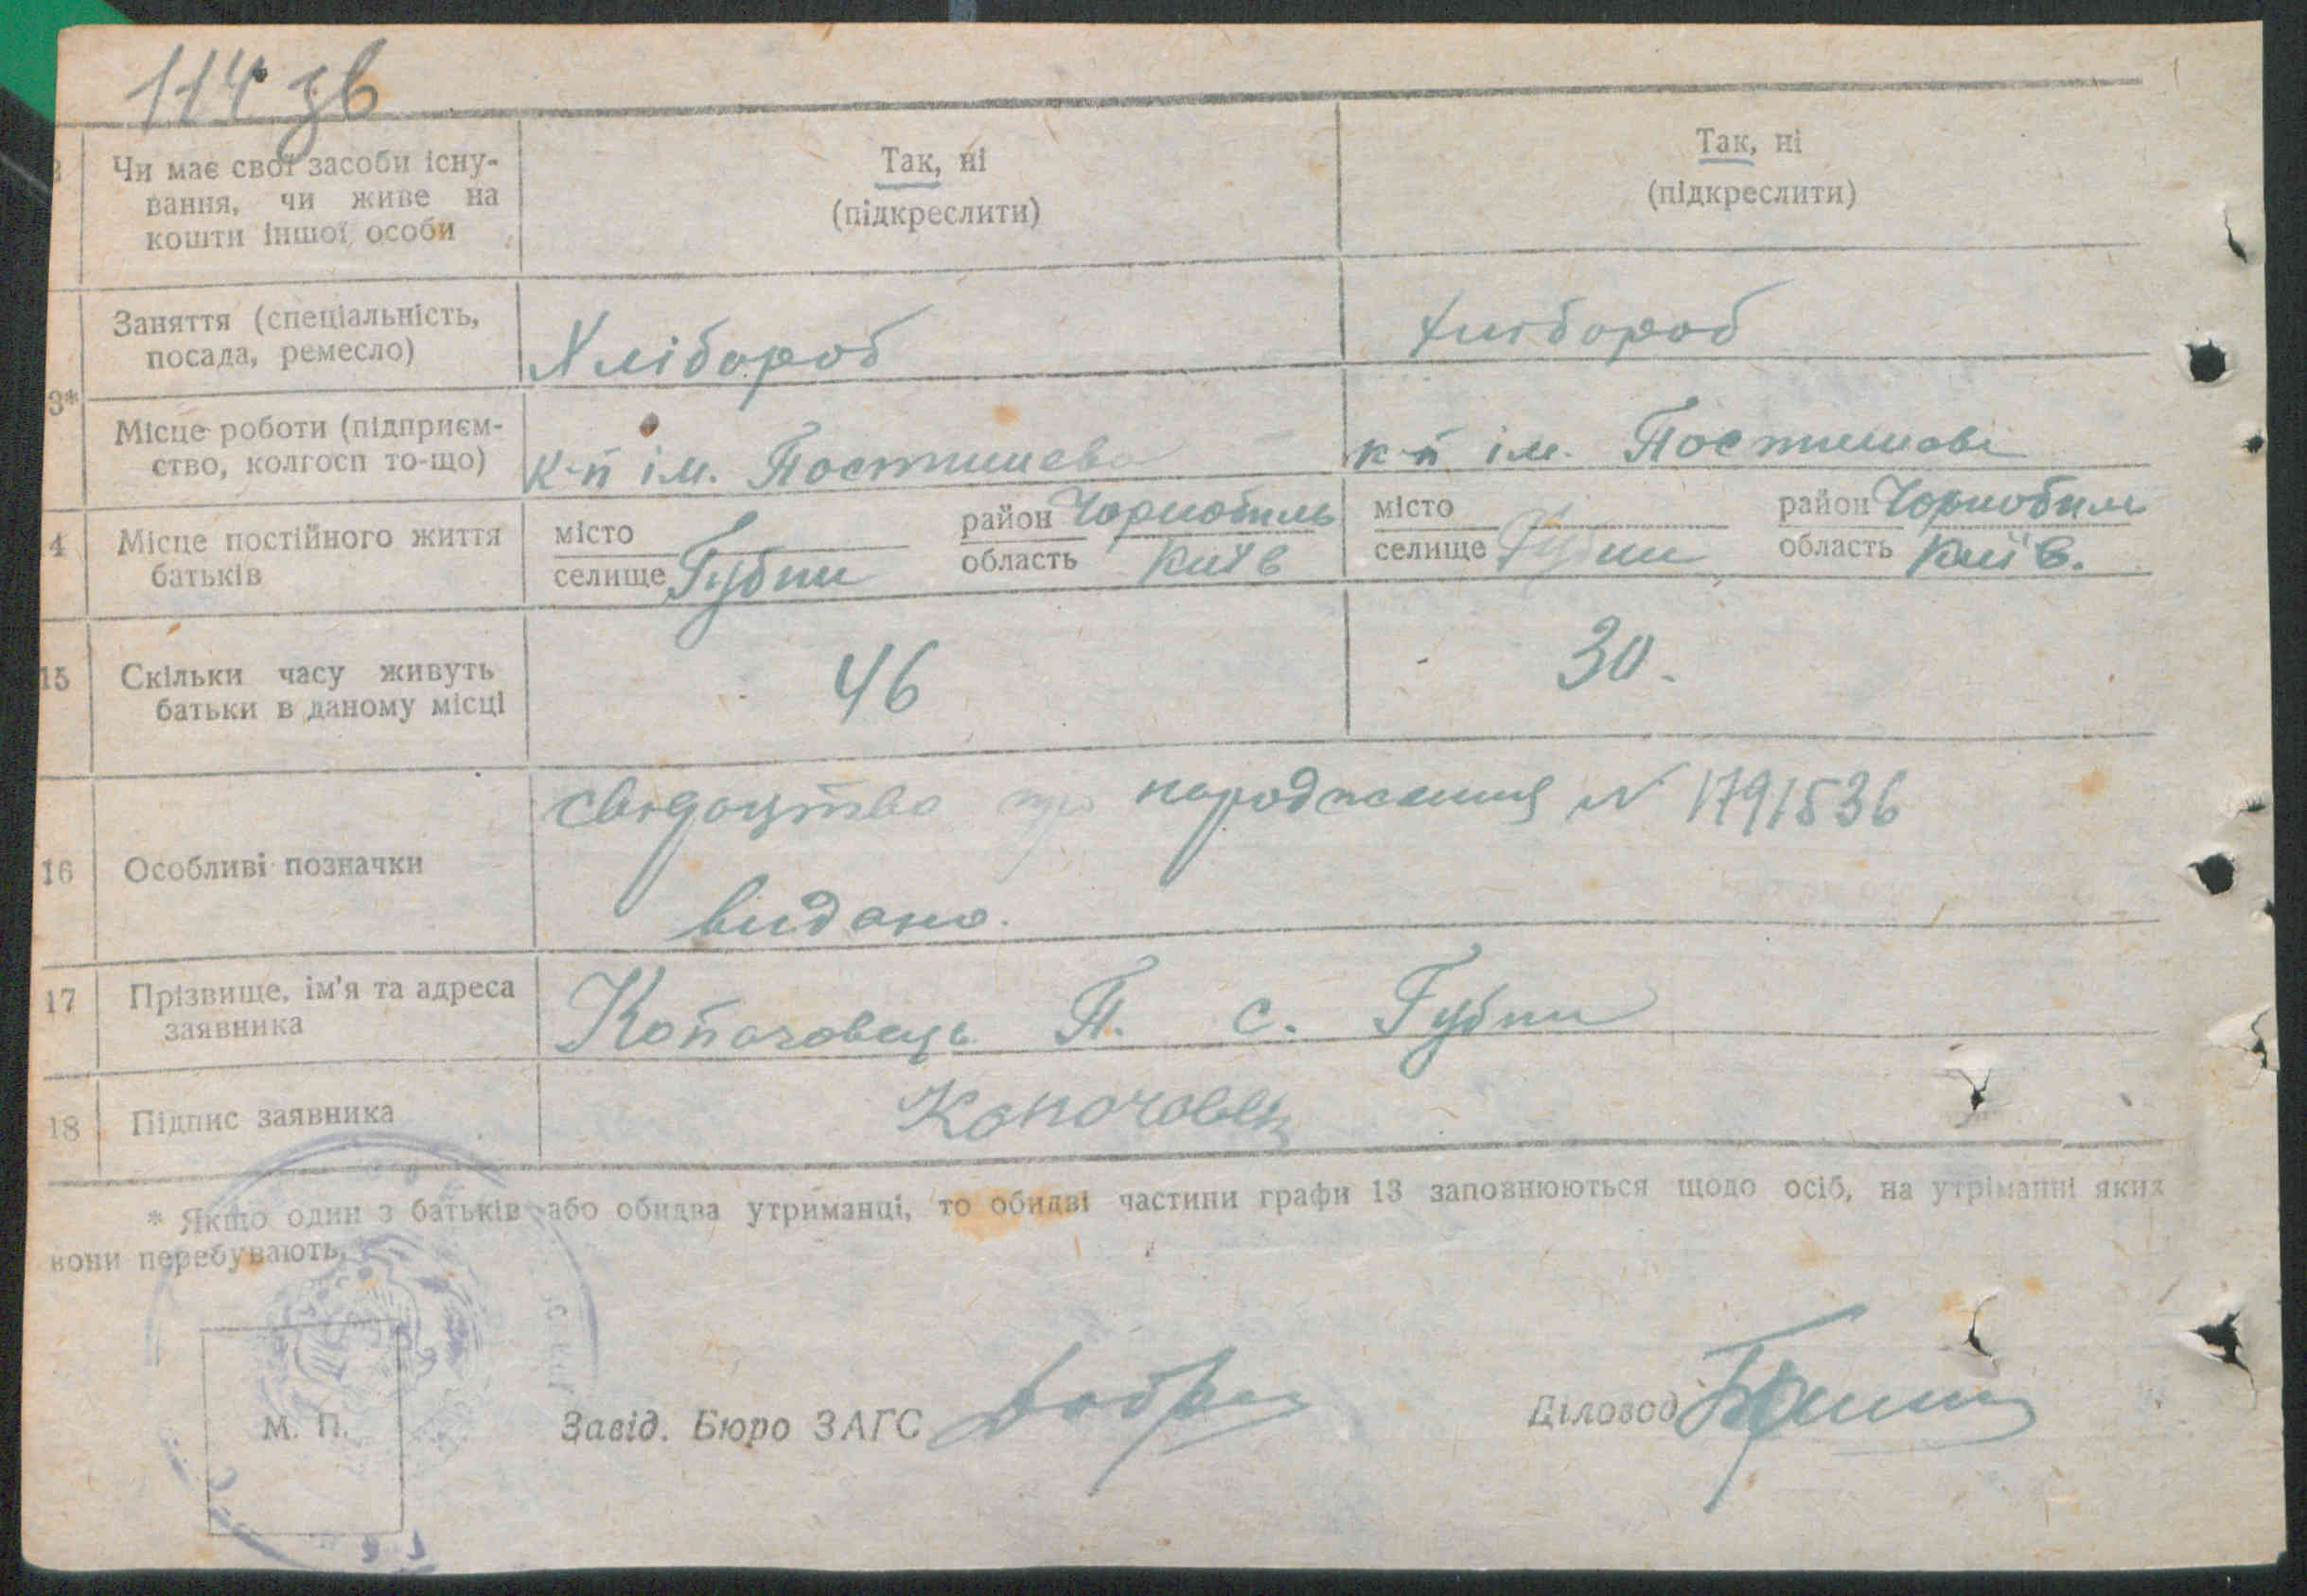 114 зв
Чи має свої засоби існу-
вання, чи живе на
кошти іншої особи
Так, ні
(підкреслити)
Так, ні
(підкреслити)
3*
Заняття (спеціальність,
посада, ремесло)
Хлібороб
Хлібороб
Місце роботи (підприєм-
ство, колгосп то-що)
к-п ім. Постишева
к-п ім. Постишеві
4
Місце постійного життя
батьків
місто
селище Губин
район Чорнобиль
область Київ
місто
селище Губин
район Чорнобиль
область Київ.
15
Скільки часу живуть
батьки в даному місці
46
30.
16
Особливі позначки
свідоцтво про народження N 1791536
видано.
17
Прізвище, ім'я та адреса
заявника
Копачовець П. с. Губин
18
Підпис заявника
Копачовец
* Якщо один з батьків або обидва утриманці, то обидві частини графи 13 заповнюються щодо осіб, на утріманні яких
вони перебувають.
М. П.
Завід. Бюро ЗАГС
Діловод